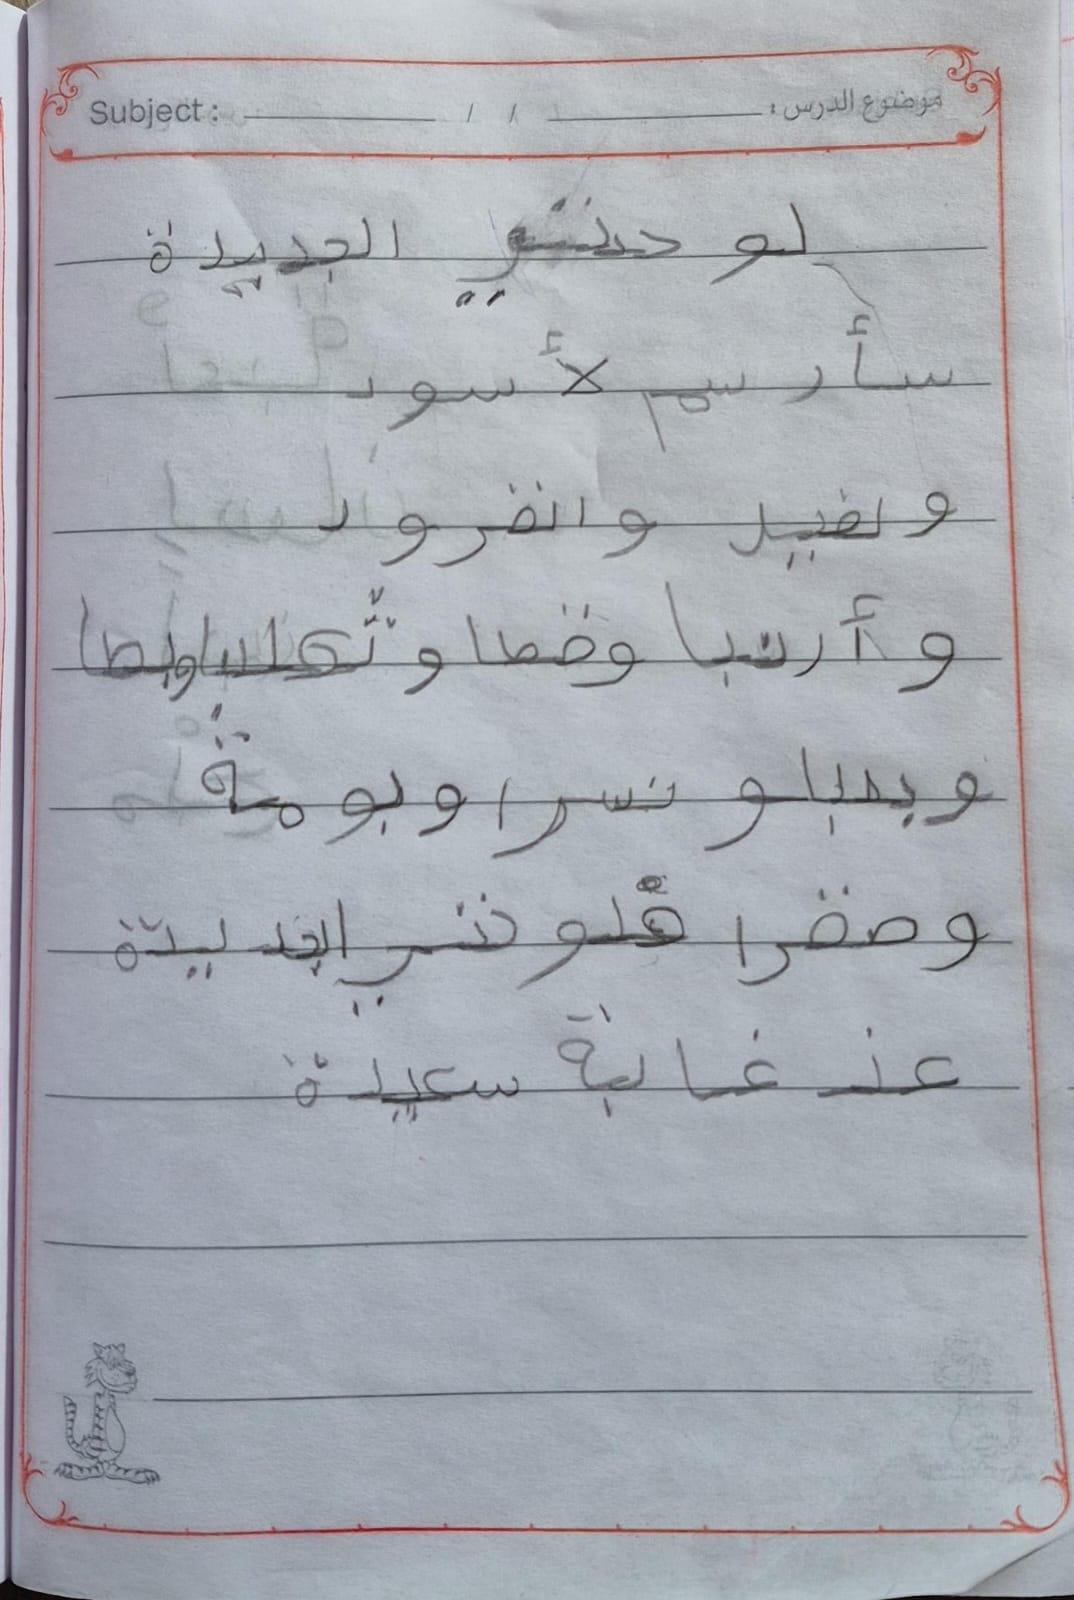 Subject : / / موضوع الدرس :
لو حتي الجديدة
سأرسم لأسود
و لفيل وانفرود
و أرنبا وقطا و ثعلبا وبطا
و ببا و نسرا و بومة
وصقرا فلو نتي الجديدة
عذ غابة سعيدة